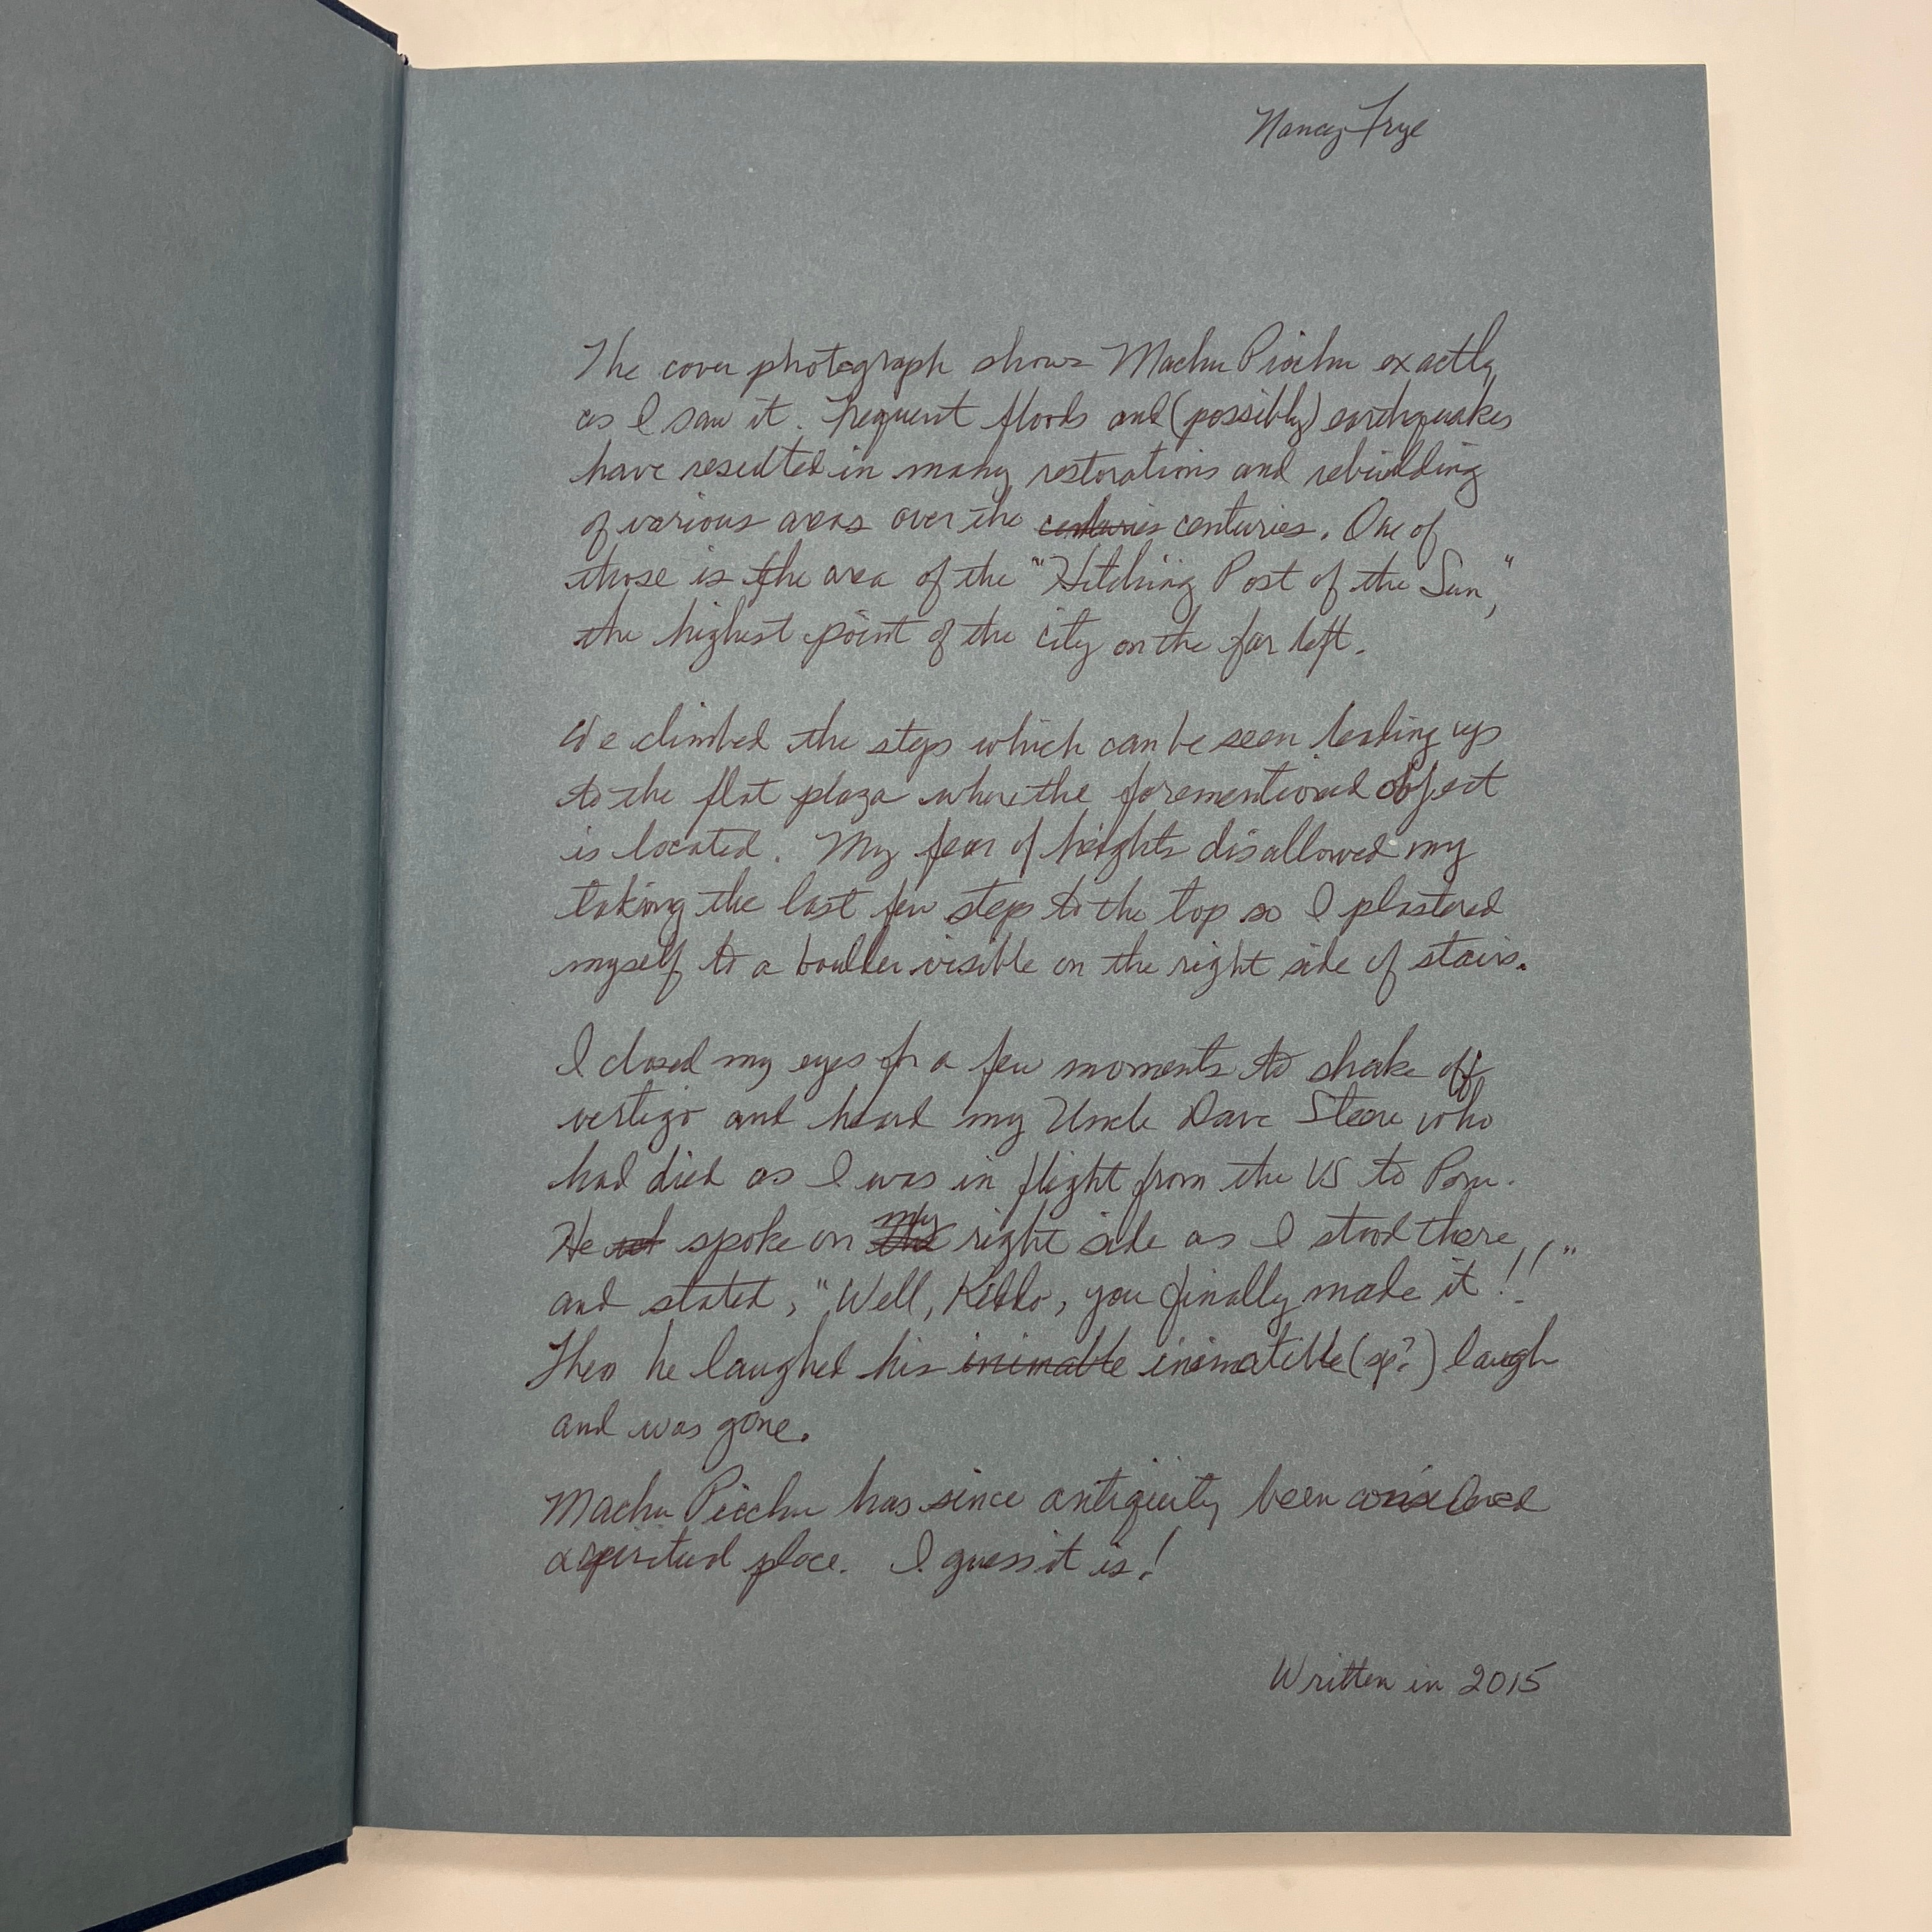 Nancy Frye
The cover photograph shows Machu Picchu exactly
as I saw it. Frequent floods and (possibly) earthquakes
have resulted in many restorations and rebuilding
of various areas over the centuries centuries. One of
those is the area of the "Hitching Post of the Sun,"
the highest point of the city on the far left.
We climbed the steps which can be seen leading up
to the flat plaza where the forementioned object
is located. My fear of heights disallowed my
taking the last few steps to the top so I plastered
myself to a boulder visible on the right side of stairs.
I closed my eyes for a few moments to shake off
vertigo and heard my Uncle Dave Steere who
had died as I was in flight from the US to Peru.
He spoke on my right side as I stood there,
and stated, "Well, Kiddo, you finally made it!!"
Then he laughed his inimable inimatible (sp?) laugh
and was gone.
Machu Picchu has since antiquity been considered
a spiritual place. I guess it is!
Written in 2015